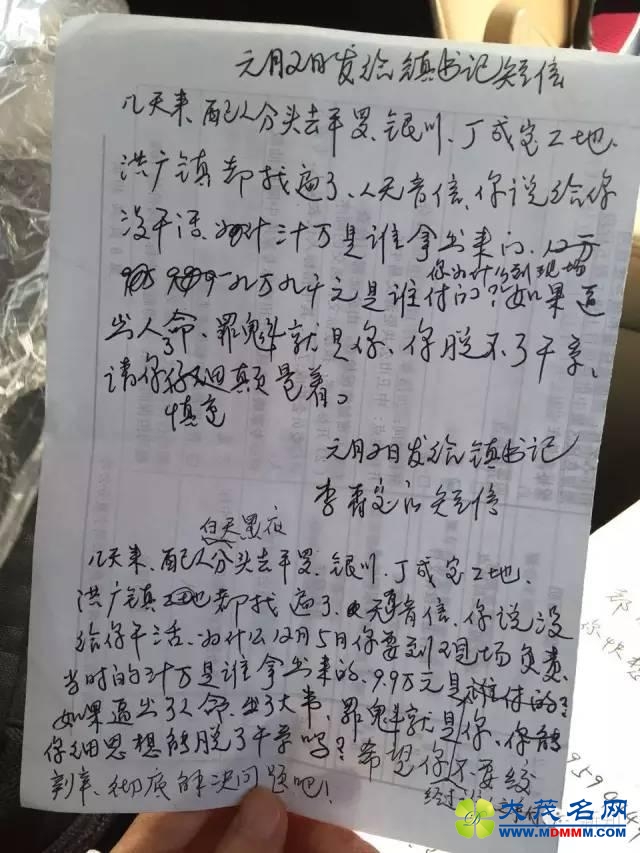 元月2日发给镇书记短信
几天来、配人分头去平罗、银川、丁成宝工地、
洪广镇却找遍了、人无音信、你说给你
没干活、为什 三十万是谁拿出来的、12万
您为什么到现场
九万九千元是谁付的?如果逼
出人命、罪魁就是你、你脱不了干系、
请你仔细掂量着。
慎重
元月2日发给镇书记
李 宝的短信
白天黑夜
几天来、配人分头去平罗、银川、丁成宝工地、
洪广镇 地都找遍了、无音信、你说没
给你干活、为什么12月5日你要到现场负责
当时的三十万是谁拿出来的、9.9万元是谁付的?
如果逼出了人命、出了大事、罪魁就是你、你能
你细思想能脱了干系吗?希望你不要
彻底解决问题吧!
经过
959
大茂名网
WWW.MDMMM.COM